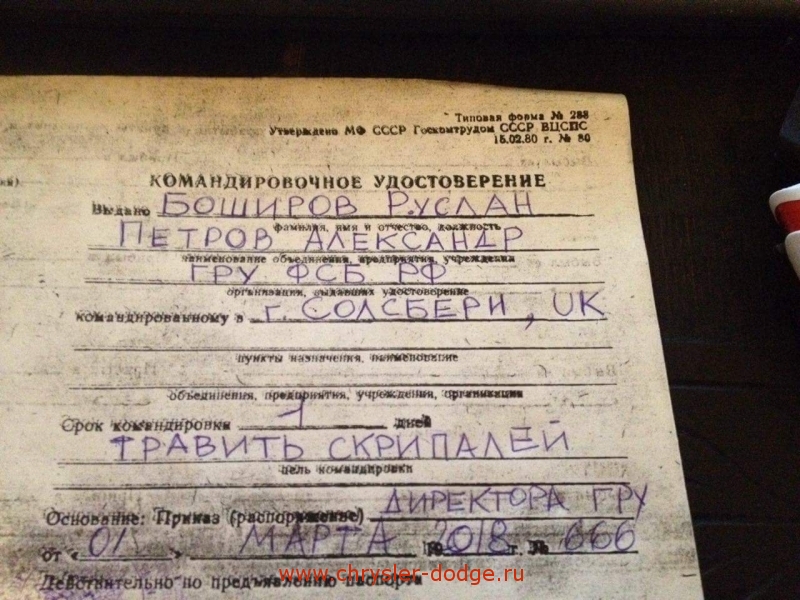 Типовая форма № 288
Утверждено МФ СССР Госкомтрудом СССР ВЦСПС
15.02.80 г. № 80
КОМАНДИРОВОЧНОЕ УДОСТОВЕРЕНИЕ
Выдано БОШИРОВ РУСЛАН
фамилия, имя и отчество, должность
ПЕТРОВ АЛЕКСАНДР
наименование объединения, предприятия, учреждения
ГРУ ФСБ РФ
организации, выдавших удостоверение
командированному в г. СОЛСБЕРИ, UK
пункты назначения, наименование
объединения, предприятия, учреждения, организации
Срок командировки 1 дней
ТРАВИТЬ СКРИПАЛЕЙ
цель командировки
Основание: Приказ (распоряжение) ДИРЕКТОРА ГРУ
от « 01 » МАРТА 2018 г. № 666
Действительно по предъявлению паспорта
www.chrysler-dodge.ru